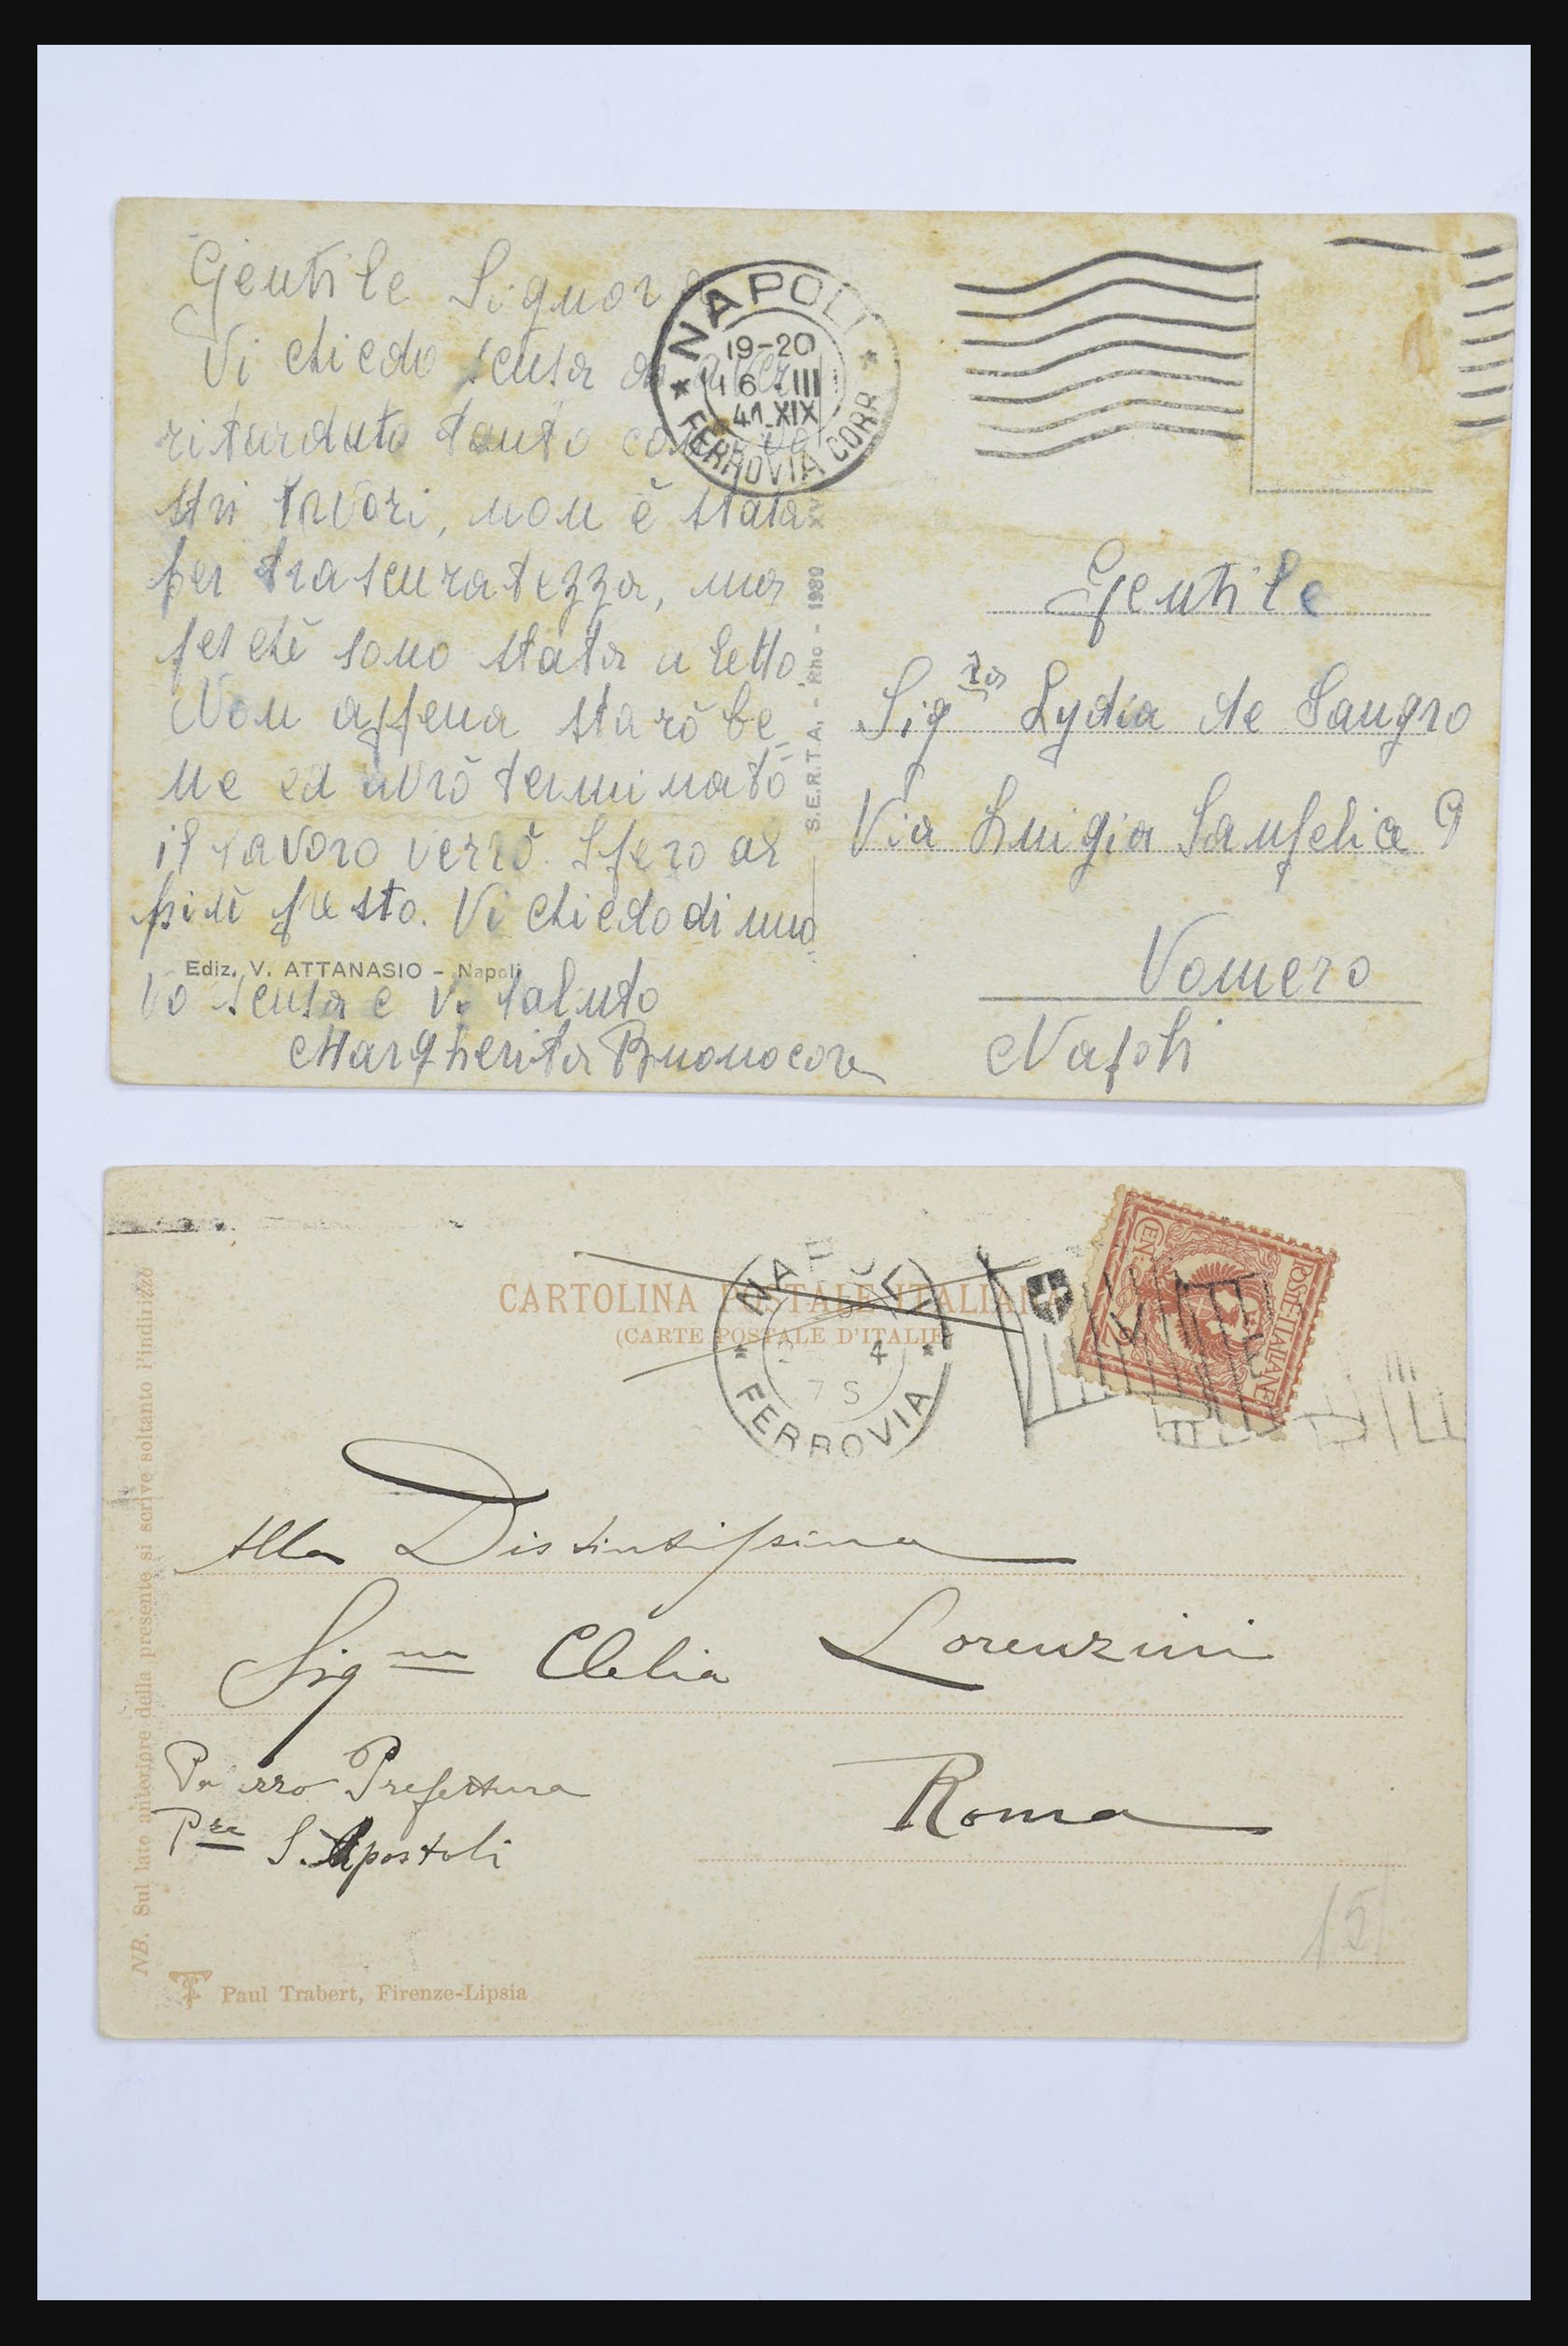 Gentile Signora
Vi chiedo scusa di aver
ritardato tanto coi vo
stri lavori, non è stata
per trascuratezza, ma
perchè sono stata a letto
Non appena starò be
ne ed avrò terminato
il lavoro verrò. Spero al
più presto. Vi chiedo di nuo
vo scusa e Vi saluto
Margherita Buonocore
Ediz. V. ATTANASIO - Napoli
S.E.R.T.A. - Rho - 1939 XV
NAPOLI
19-20
16 III
41 XIX
FERROVIA CORR.
Gentile
Sig.ra Lydia de Sangro
Via Luigia Sanfelice 9
Vomero
Napoli
CARTOLINA POSTALE ITALIANA
(CARTE POSTALE D'ITALIE)
NAPOLI
4
7 S
FERROVIA
POSTE ITALIANE
CENT. 2
Alla Distintissima
Signa Clelia Lorenzini
Palazzo Prefettura
Pza S. Apostoli
Roma
15
NB. Sul lato anteriore della presente si scrive soltanto l'indirizzo
Paul Trabert, Firenze-Lipsia